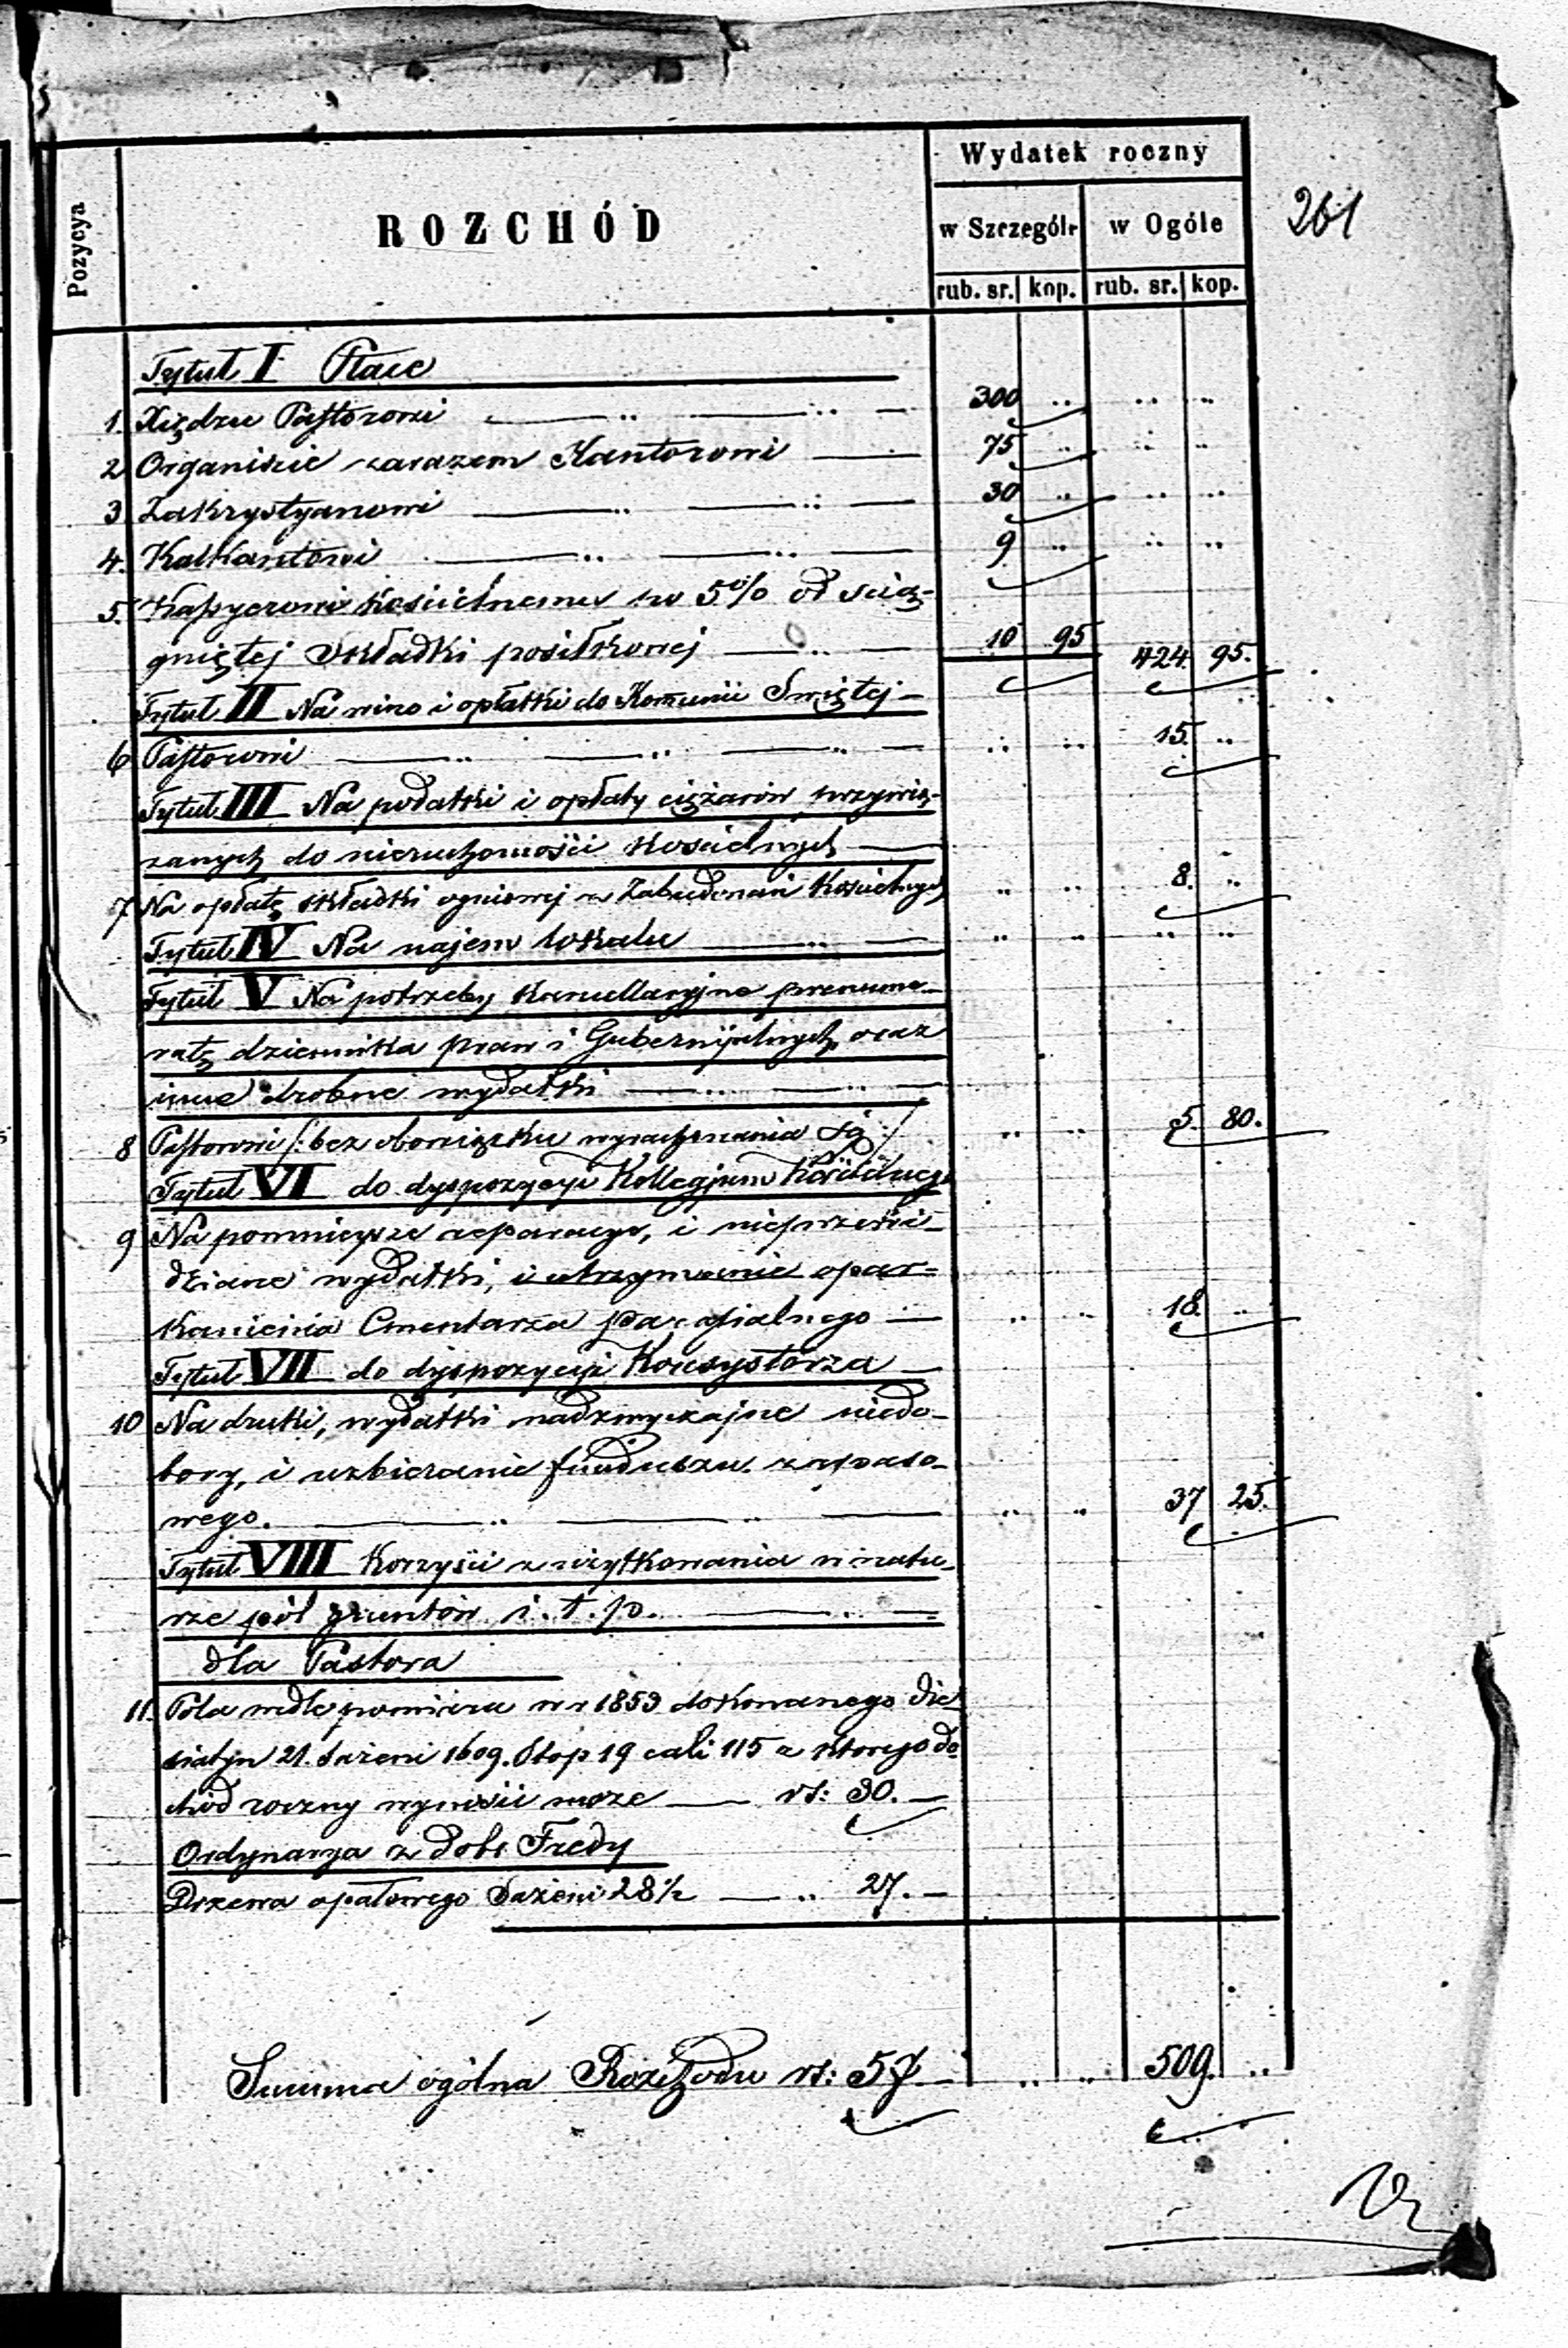 261
Wydatek roczny
Pozycya
ROZCHÓD
w Szczegól. w Ogóle
rub. sr. kop. rub. sr. kop.
Tytuł I Płace
1. Xiędzu Pastorowi 300 .. .. ..
2 Organiście zarazem Kantorowi 75 .. .. ..
3 Zakrystyanowi 30 .. .. ..
4. Kalkantowi 9 .. .. ..
5. Kassyerowi Kościelnemu po 5% od ścią-
gniętej Składki posiłkowej 10 95 424. 95.
Tytuł II Na wino i opłatki do Komunii Świętej
6 Pastorowi .. .. 15. ..
Tytuł III Na podatki i opłaty ciężarów przywią-
zanych do nieruchomości Kościelnych
7 Na opłatę składki ogniowej z Zabudowań Kościelnych .. .. 8. ..
Tytuł IV Na najem lokalu .. .. .. ..
Tytuł V Na potrzeby Kancellaryjne prenume-
ratę dziennika praw i Gubernijalnych, oraz
inne drobne wydatki
8 Pastorowi /: bez obowiązku wyrachowania się :/ .. .. 5. 80.
Tytuł VI do dyspozycyi Kollegjum Kościelnego
9 Na pomniejsze reparacye, i nieprzewi-
dziane wydatki, i utrzymanie opar-
kanienia Cmentarza parafialnego .. .. 18. ..
Tytuł VII do dyspozycyi Konsystorza
10 Na druki, wydatki nadzwyczajne niedo-
bory, i uzbieranie funduszu zapaso-
wego. .. .. 37 25.
Tytuł VIII Korzyści z użytkowania w natu-
rze pól gruntów i. t. p.
dla Pastora
11. Pola wedle pomiaru w r 1853 dokonanego Die-
siatyn 21. Sażeni 1609. Stop 19 cali 115 z którego do-
chód roczny wynosić może rs: 30.
Ordynarya z Dobr Fredy
Drzewa opałowego Sażeni 28½ .. 27.
Summa ogólna Rozchodu rs: 57. .. .. 509. ..